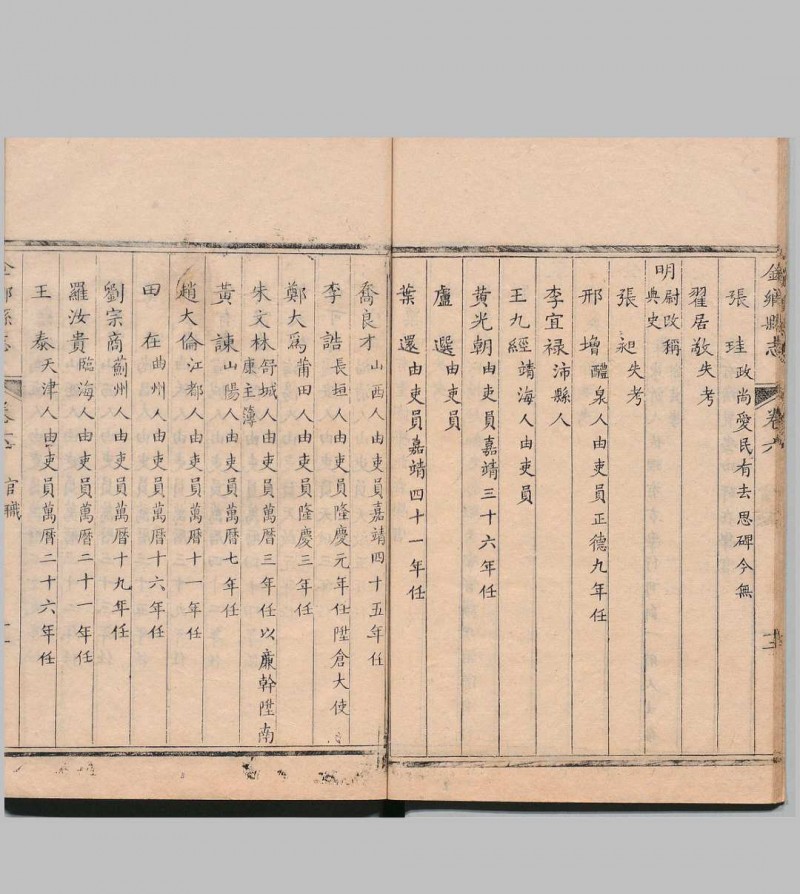 金鄉縣志 卷六
張珪政尚愛民有去思碑今無
翟居敬失考
明尉改稱典史
張昶失考
邢增醴泉人由吏員正德九年任
李宜祿沛縣人
王九經靖海人由吏員
黃光朝由吏員嘉靖三十六年任
盧選由吏員
葉還由吏員嘉靖四十一年任
喬良才山西人由吏員嘉靖四十五年任
李誥長垣人由吏員隆慶元年任陞倉大使
鄭大爲莆田人由吏員隆慶三年任
朱文林舒城人由吏員萬曆三年任以廉幹陞南康主簿
黃諫山陽人由吏員萬曆七年任
趙大倫江都人由吏員萬曆十一年任
田在曲州人由吏員萬曆十六年任
劉宗商薊州人由吏員萬曆十九年任
羅汝貴臨海人由吏員萬曆二十一年任
王泰天津人由吏員萬曆二十六年任
縣志 官職